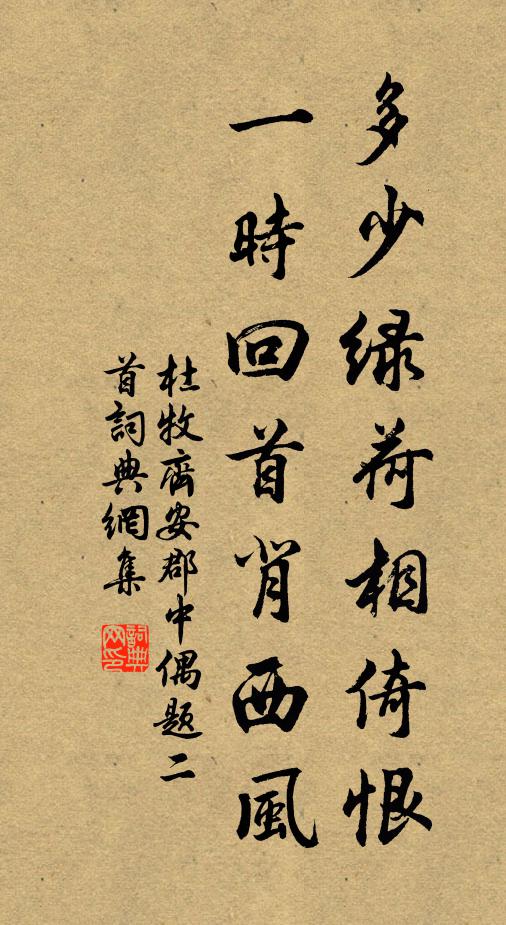 多少緑荷相倚恨
一時回首背西風
杜牧齊安郡中偶題二
首詞典網集
詞典
网印